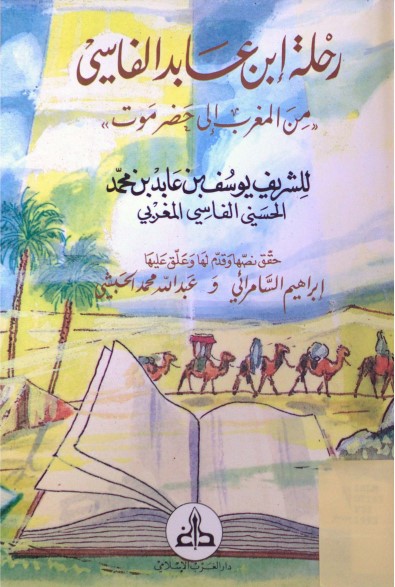 رحلة إبن عابد الفاسي
«مِنَ المغرب إلى حَضرمَوت»
للشريف يوسف بن عابد بن محمّد
الحسَني الفاسي المغربي
حقّق نصّها وقدّم لها وعلّق عليها
إبراهيم السامرائي و عبدالله محمد الحبشي
دار الغرب الإسلامي